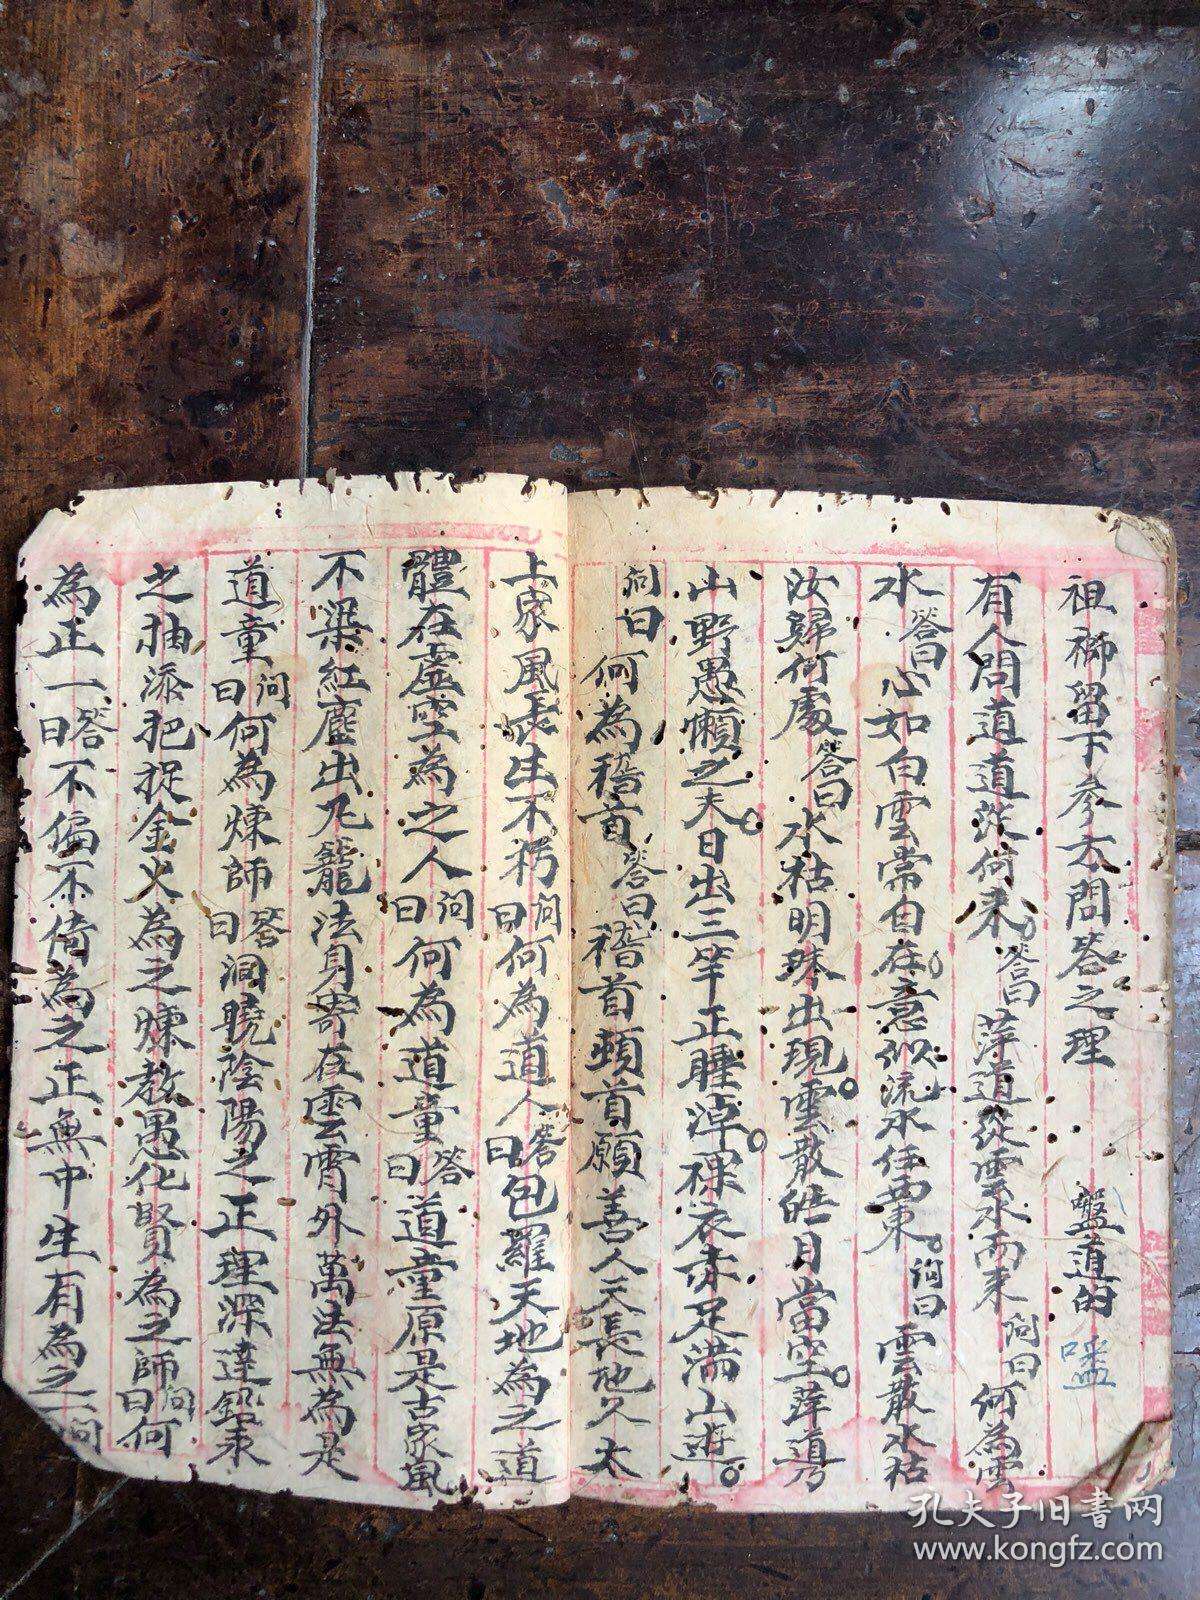 祖師留下參太問答之理 盤道的 嗑
有人問道道從何來答曰萍道從雲水而來問曰何為雲
水答曰心如白雲常自在意似流水任西東問曰雲散水枯
汝歸何處答曰水枯明珠出現雲散皓月當空萍道乃
山野愚懶之夫日出三竿正睡淖裸衣赤足滿山遊
問曰何為稽首答曰稽首頓首願善人天長地久太
上家風長生不朽問曰何為道人答曰包羅天地為之道
體在虛空為之人問曰何為道童答曰道童原是古家風
不染紅塵出凡籠法身寄在雲霄外萬法無為是
道童問曰何為煉師答曰洞曉陰陽之正理深達鉛汞
之抽添把捉金火為之煉教愚化賢為之師問曰何
為正一答曰不偏不倚為之正無中生有為之一問
孔夫子旧书网
www.kongfz.com